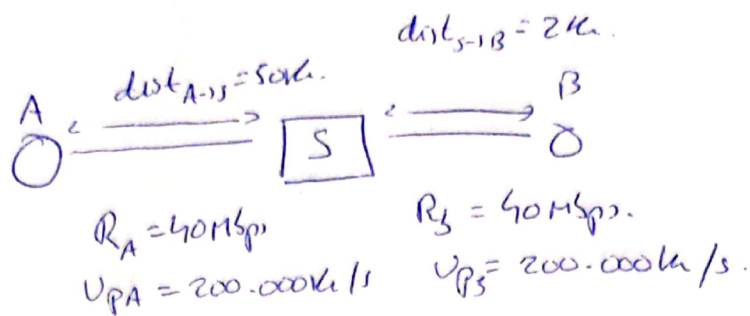 dist_S→B = 2 Km.
dist_A→S = 50 Km.
A
B
S
R_A = 40 Mbps
R_S = 40 Mbps.
v_PA = 200.000 Km/s
v_PS = 200.000 Km/s.